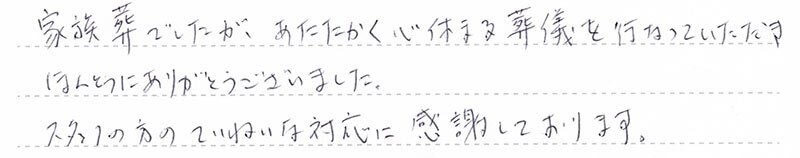 家族葬でしたが、あたたかく心休まる葬儀を行なっていただき
ほんとうにありがとうございました。
スタッフの方のていねいな対応に感謝しております。